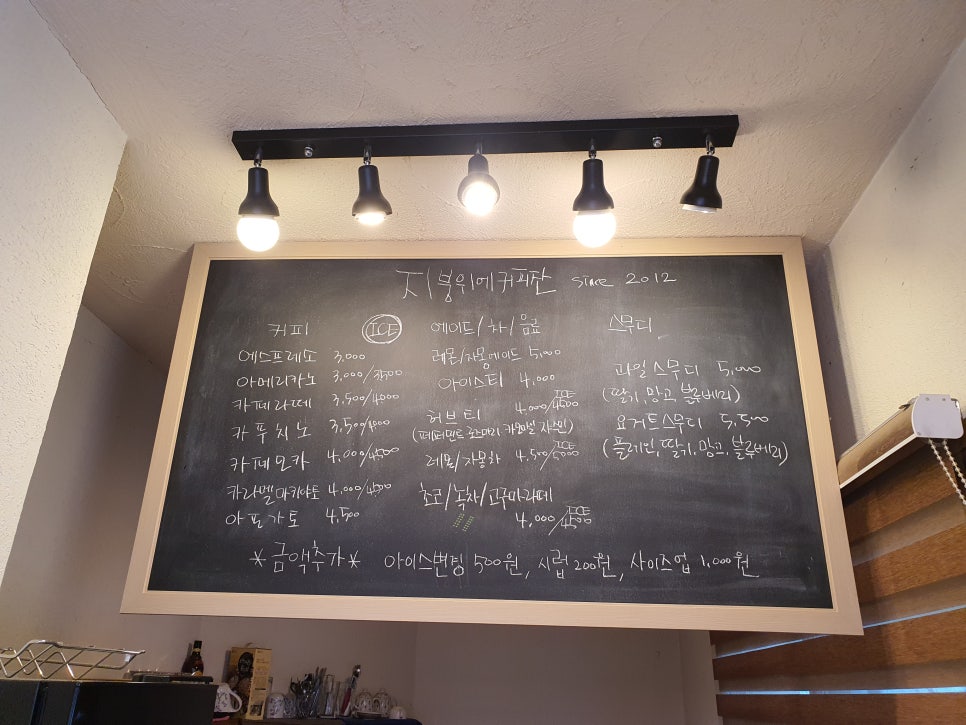 지붕위에커피판 since 2012
커피 ICE
에스프레소 3,000
아메리카노 3,000/3,500
카페라떼 3,500/4,000
카푸치노 3,500/4,000
카페모카 4,000/4,500
카라멜마키아토 4,000/4,500
아포가토 4,500
에이드/차/음료
레몬/자몽에이드 5,000
아이스티 4,000
허브티 4,000/4,500 ICE
(페퍼민트 로즈마리 카모마일 자스민)
레몬/자몽차 4,500/5,000 ICE
초코/녹차/고구마라떼
4,000/4,500 ICE
스무디
과일스무디 5,000
(딸기, 망고, 블루베리)
요거트스무디 5,500
(플레인, 딸기, 망고, 블루베리)
*금액추가* 아이스변경 500원, 시럽 200원, 사이즈업 1,000원